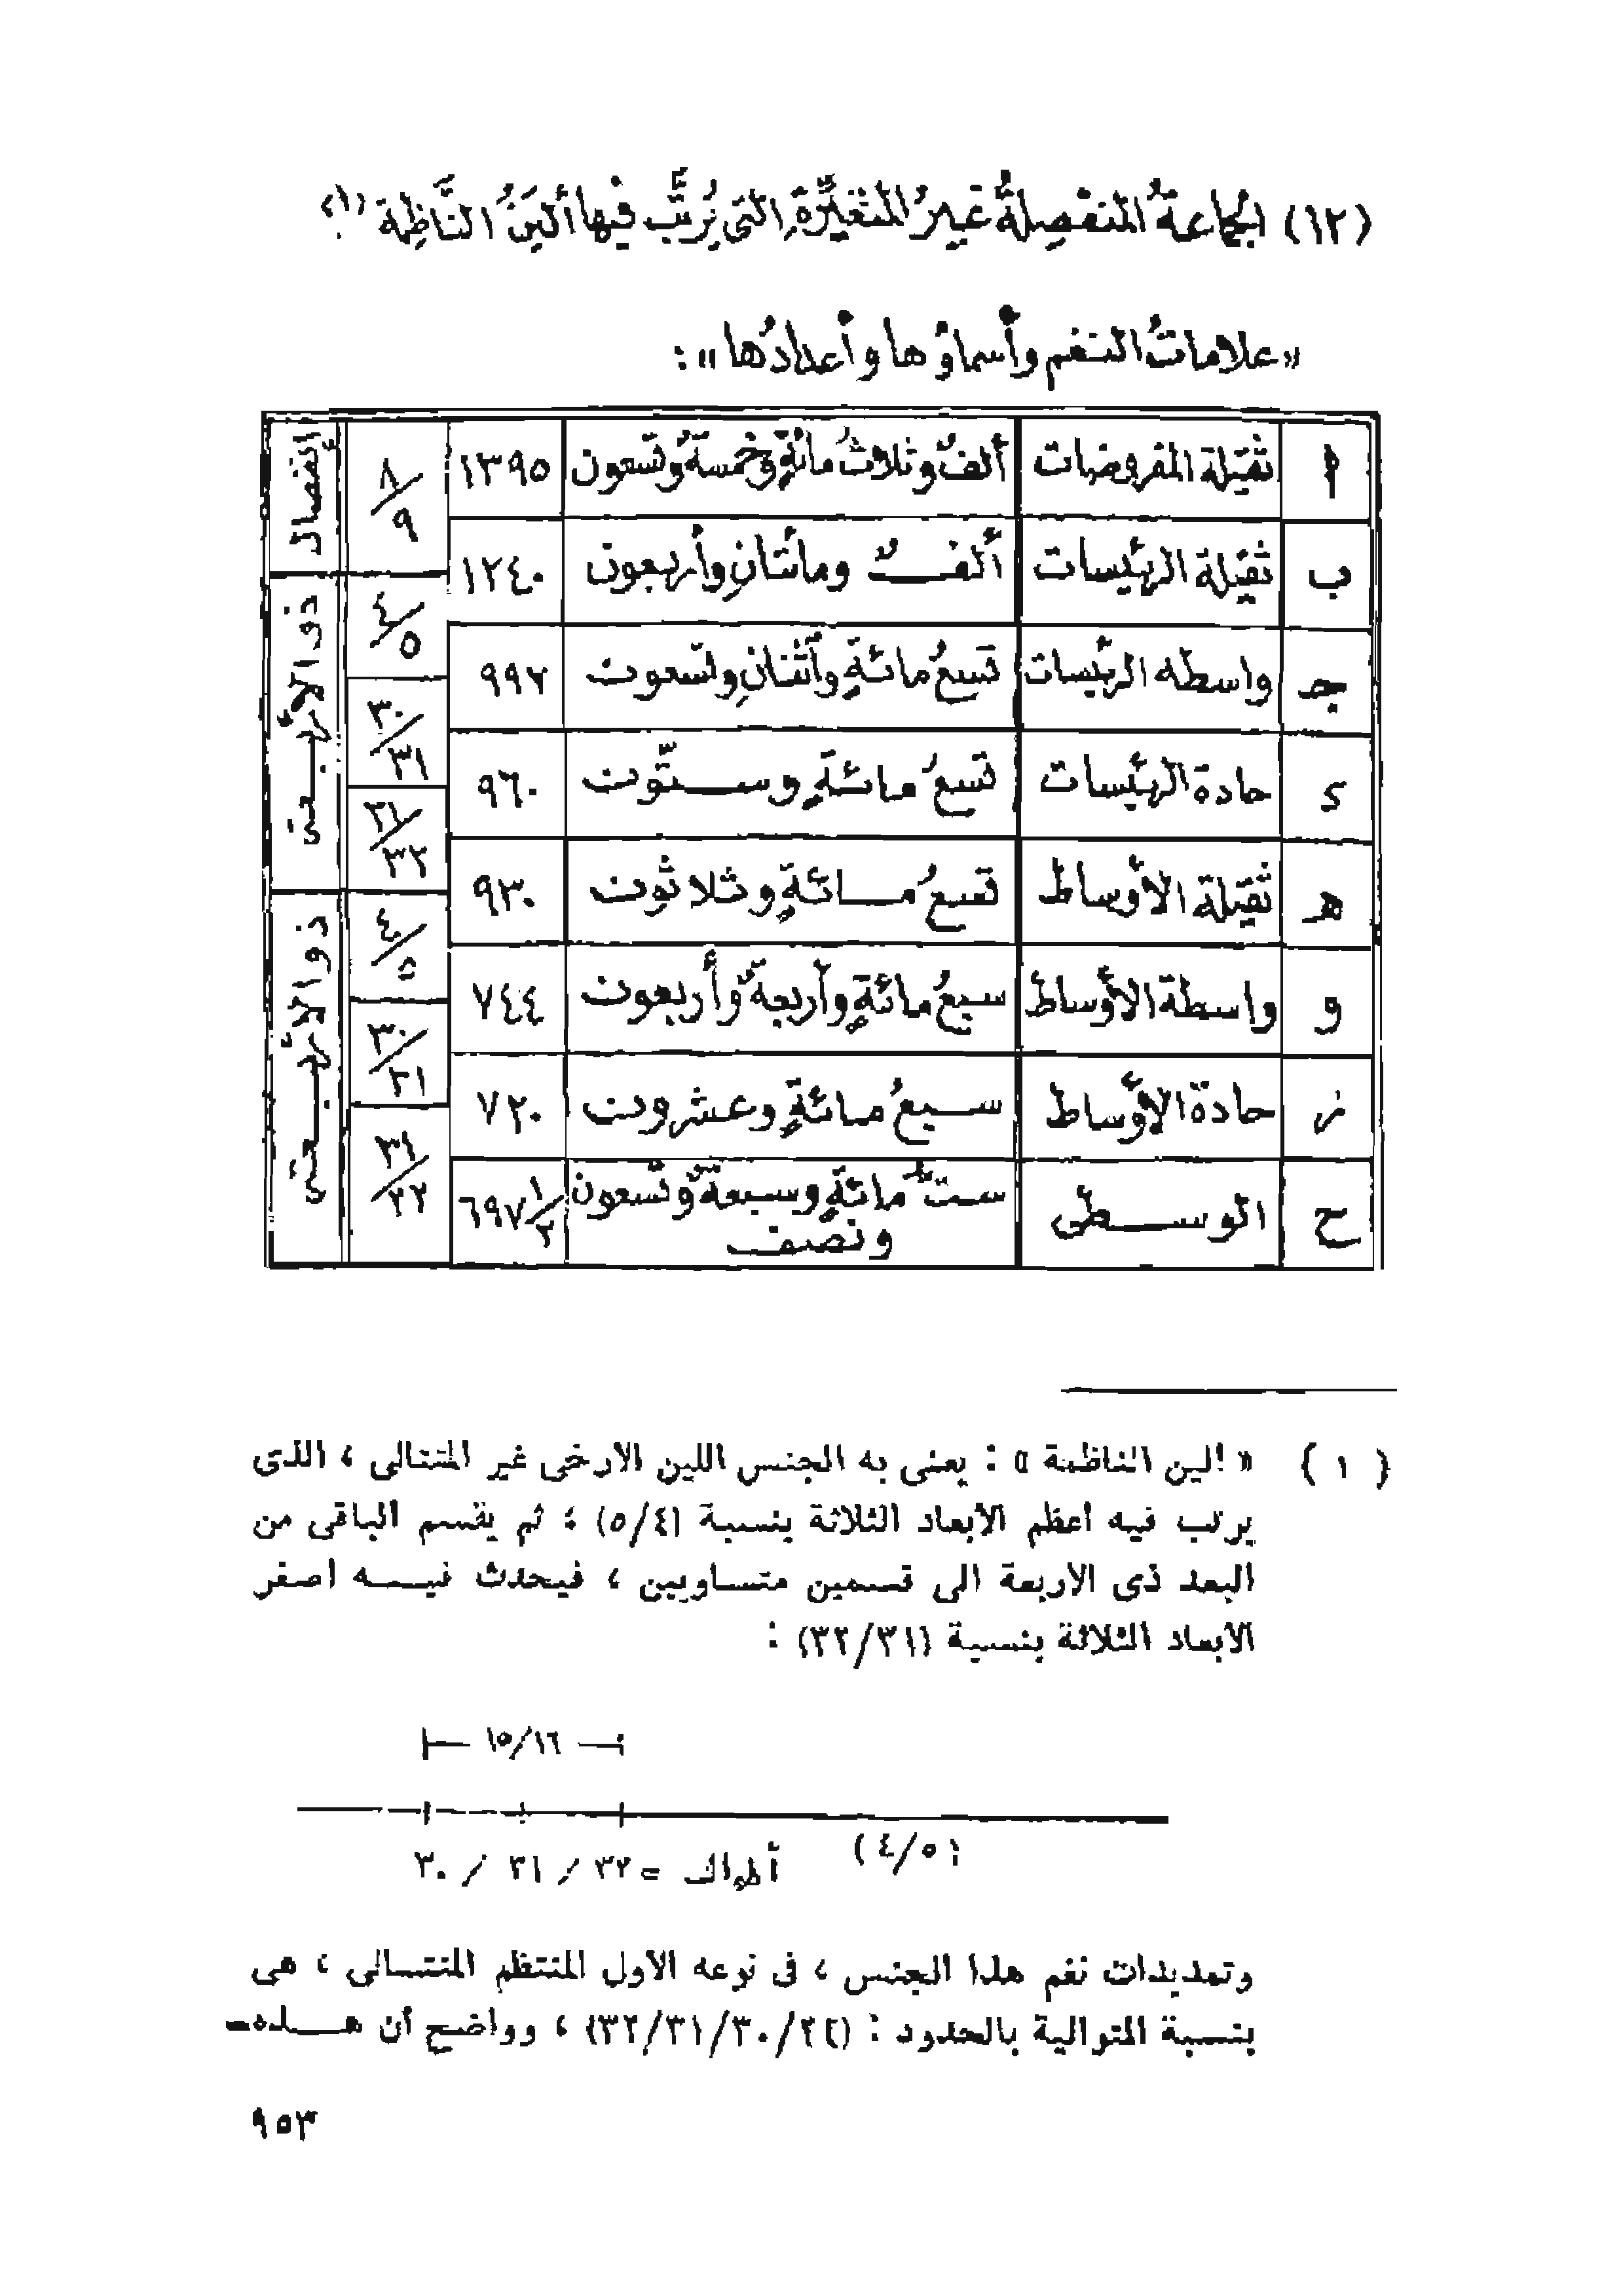 (١٢) الجماعةُ المنفصِلةُ غيرُ المتغيِّرةِ، التى يُرتَّب فيها ألينُ النَّاظِمة (١)
«علاماتُ النغم وأسماؤُها وأعدادُها» :
ا ثقيلة المفروضات ألفٌ وثلاثُ مائةٍ وخمسةٌ وتسعون ١٣٩٥
ب ثقيلة الرئيسات ألفٌ ومائتانِ وأربعون ١٢٤٠
جـ واسطه الرئيسات تسعُ مائةٍ وآثنانِ وتسعون ٩٩٢
د حادة الرئيسات تسعُ مائةٍ وستّون ٩٦٠
هـ ثقيلة الأوساط تسعُ مائةٍ وثلاثون ٩٣٠
و واسطة الأوساط سبعُ مائةٍ وأربعةٌ وأربعون ٧٤٤
ز حادة الأوساط سبعُ مائةٍ وعشرون ٧٢٠
ح الوسطى ستُّ مائةٍ وسبعةٌ وتسعون ونصف ٦٩٧ ١/٢
٨/٩ انفصال
٤/٥ ٣٠/٣١ ٣١/٣٢ ذو الأربعة
٤/٥ ٣٠/٣١ ٣١/٣٢ ذو الأربعة
(١) « الين الناظمة » : يعنى به الجنس اللين الارخى غير المتتالى ، الذى
يرتب فيه أعظم الأبعاد الثلاثة بنسبة (٥/٤) ؛ ثم يقسم الباقى من
البعد ذى الاربعة الى قسمين متساويين ، فيحدث فيـــه اصغر
الأبعاد الثلاثة بنسبة (٣٢/٣١) :
١٥/١٦
(٤/٥)
أطوال = ٣٢ / ٣١ / ٣٠
وتمديدات نغم هذا الجنس ، فى نوعه الأول المنتظم المتتــالى ، هى
بنسبة المتوالية بالحدود : (٣٢/٣١/٣٠/٢٤) ، وواضح أن هـــذه
٩٥٣